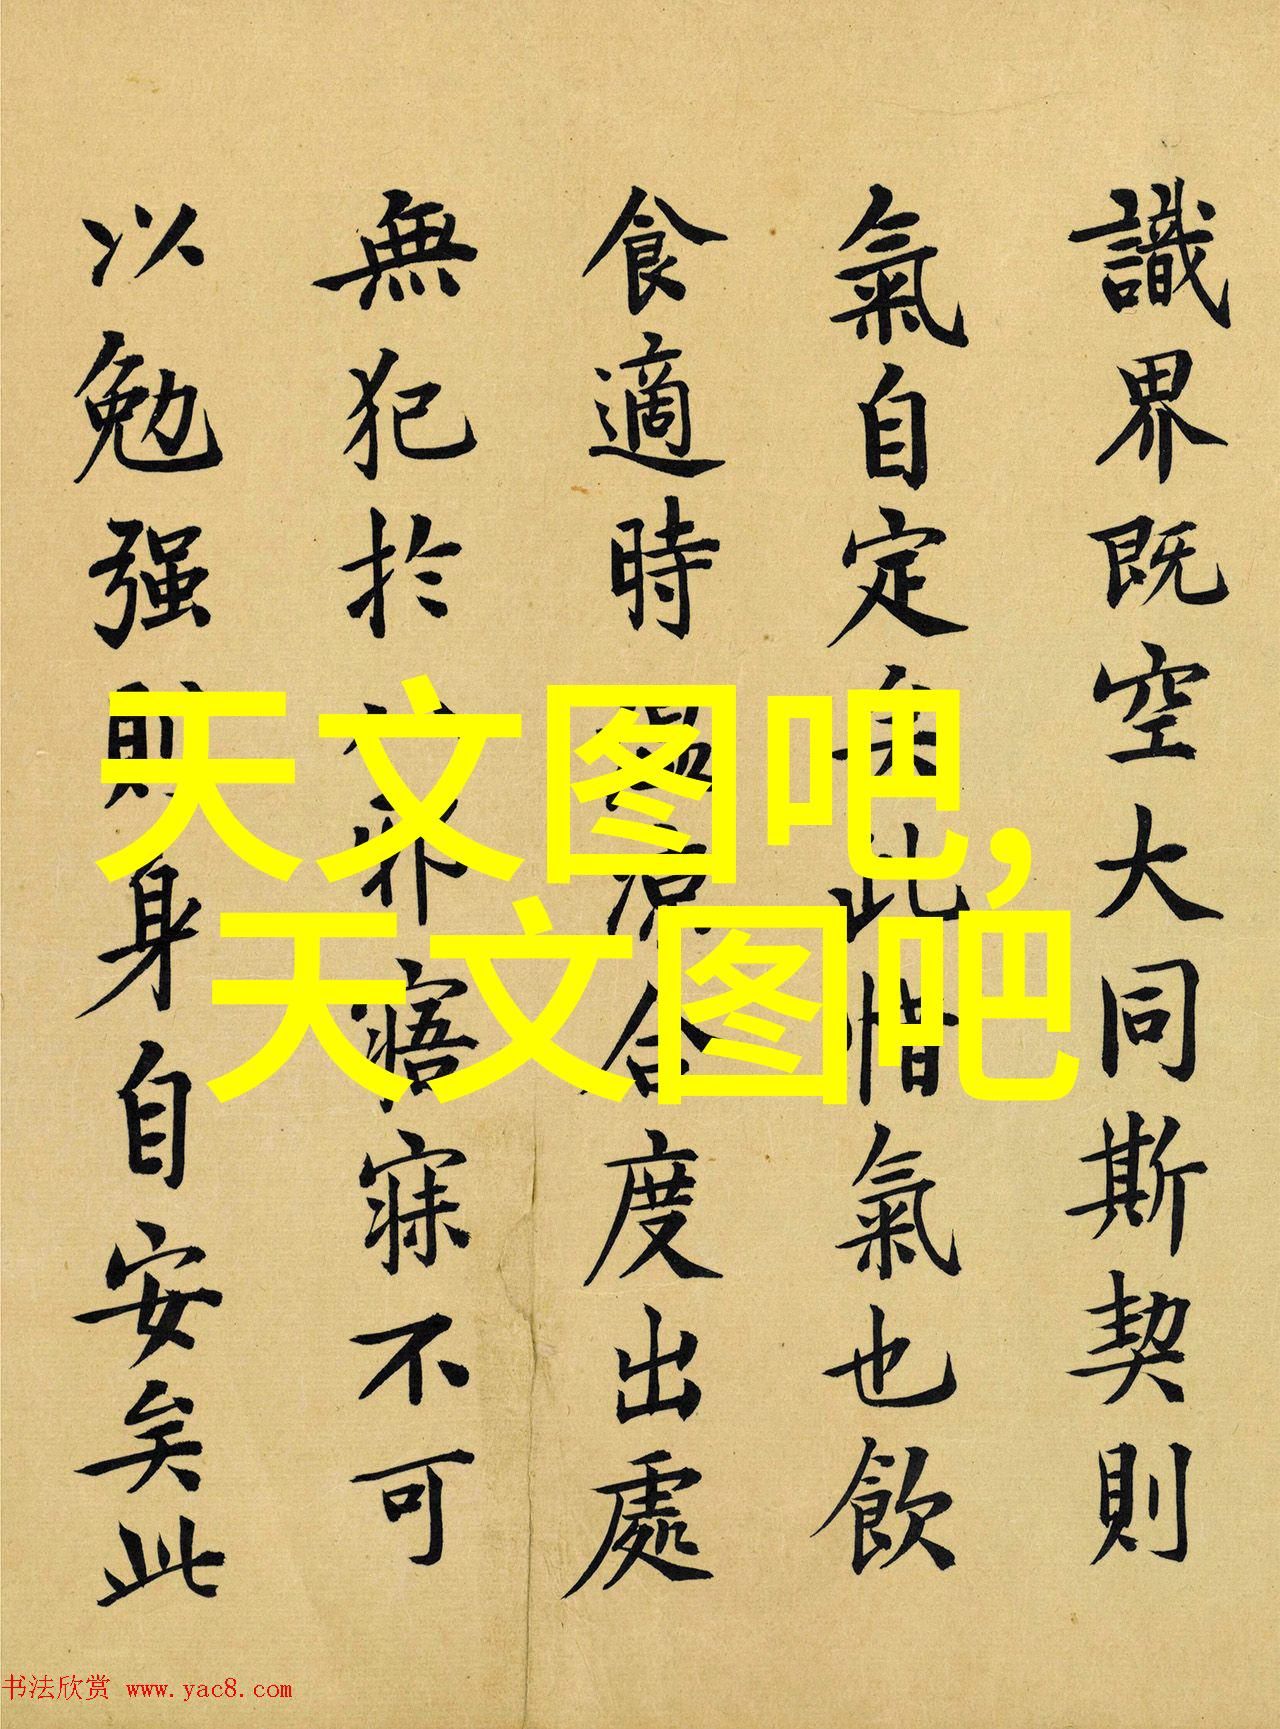 識界既空大同斯契則
氣自定矣此惜氣也飲
食適時溫涼合度出處
無犯於邪寤寐不可
以勉强則身自安矣此
天文图吧,
天文图吧
书法欣赏 www.yac8.com